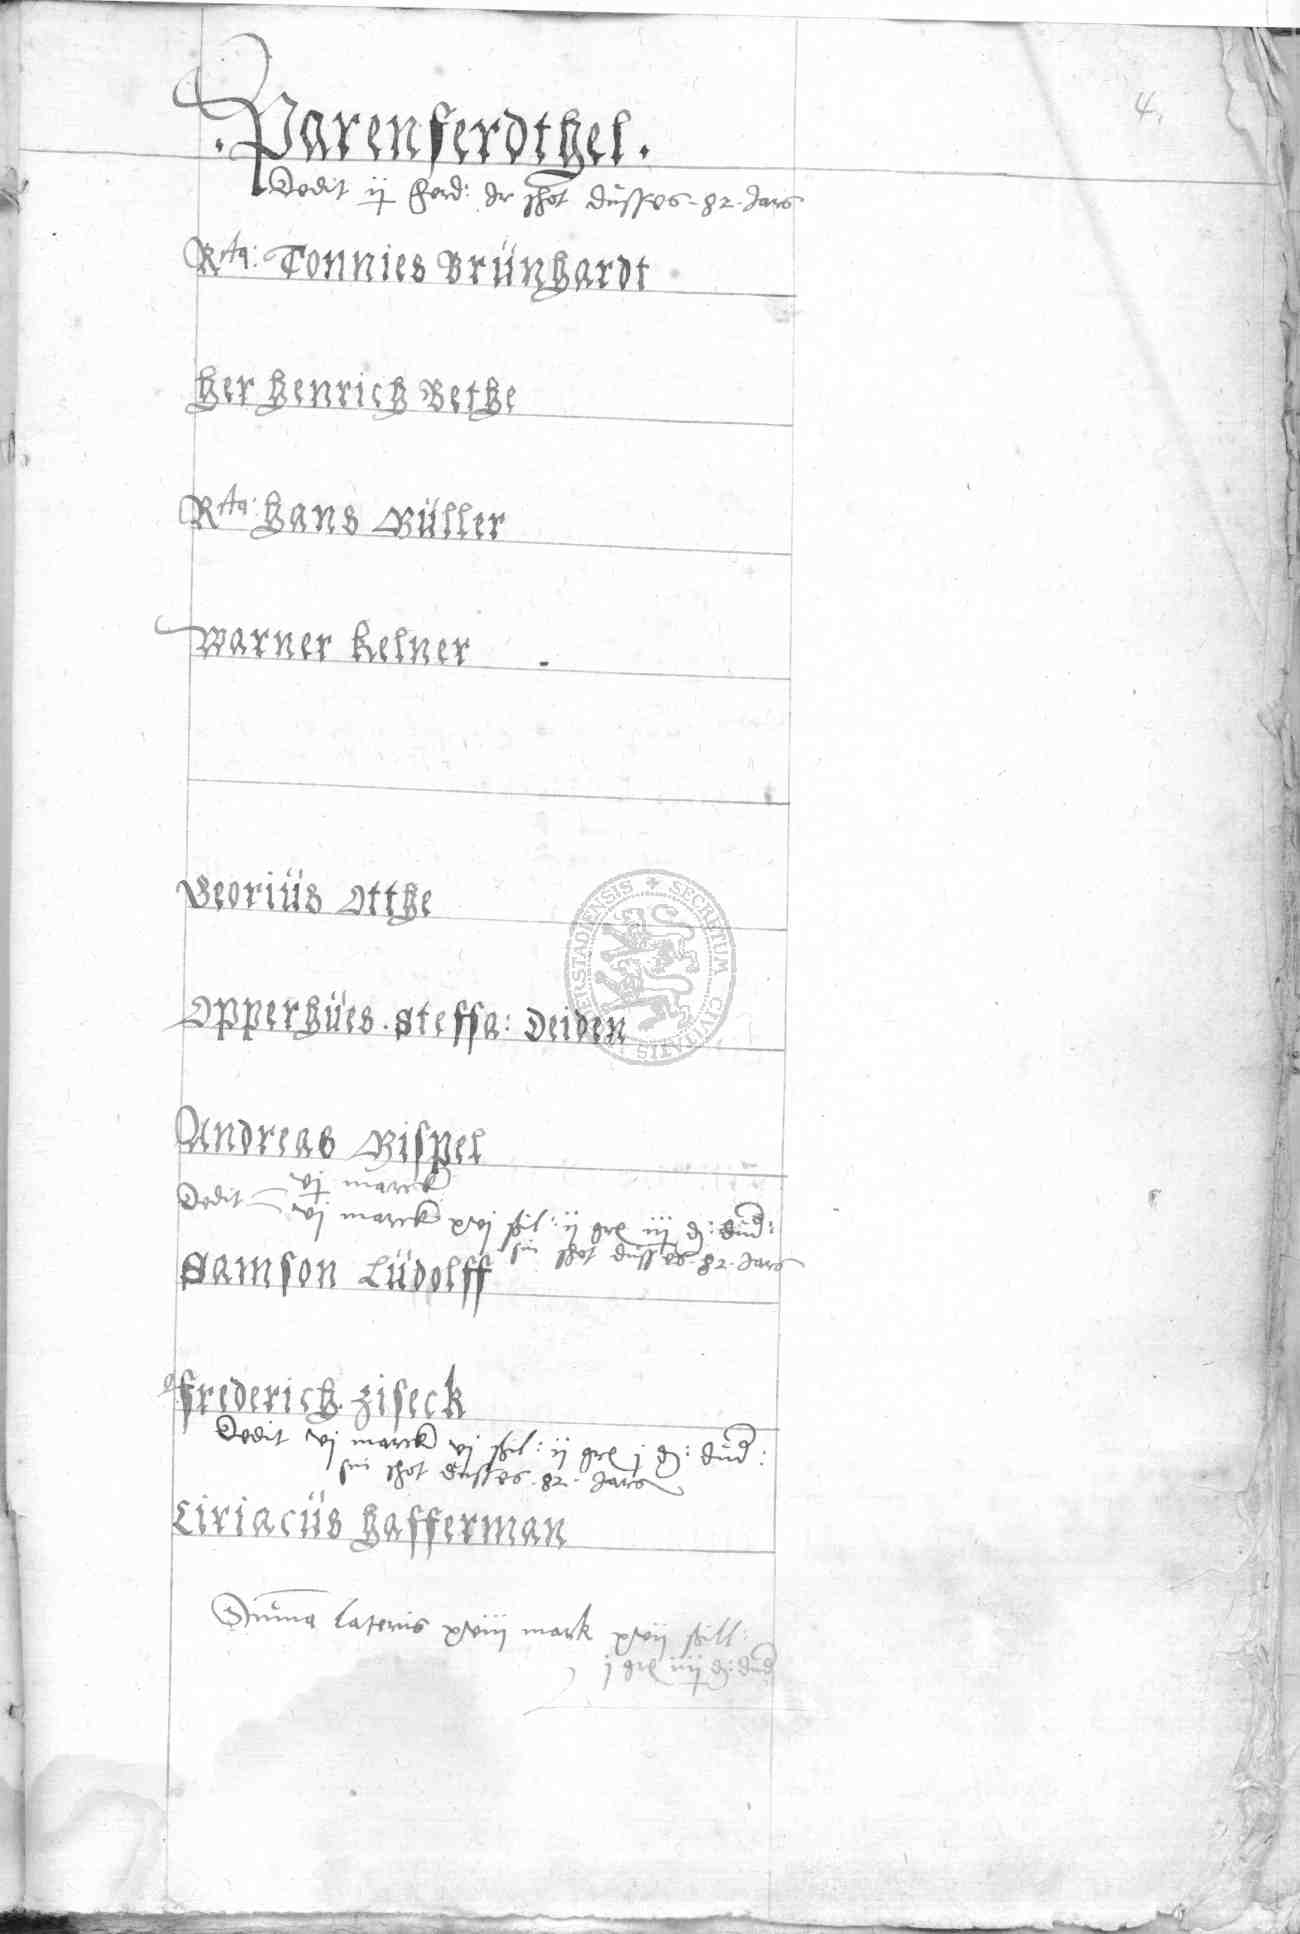 4.
Parenferdthel.
Dedit ij ferd: dr schot düsses 82 Jars
Rta: Tonnies Brünhardt
Her Henrich Bethe
Rta: Hans Müller
Warner Kelner
Georiüs Otthe
Opperhües. Steffa: Deiden
Andreas Mispel
vj marck
Dedit vj marck xvj schil: ij gre iij d: dud:
sin schot düsses 82 Jars
Samson Lüdolff
Frederich Ziseck
Dedit vj marck vj schil: ij gre j d: dud:
sin schot düsses 82 Jars
Ciriacüs Hafferman
Summa lateris xviij mark xvij schill:
j gre iiij d: dud
SECRETUM CIVITATIS ERSTADIENSIS